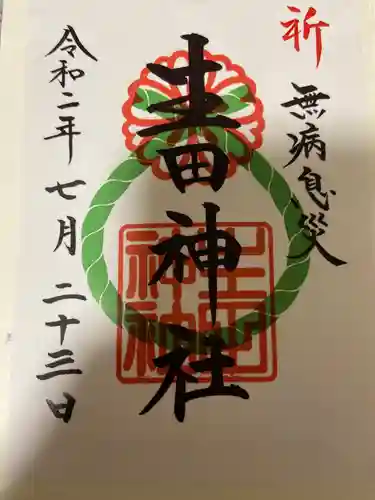 祈
無病息災
生田神社
生田
神社
令和二年七月二十三日